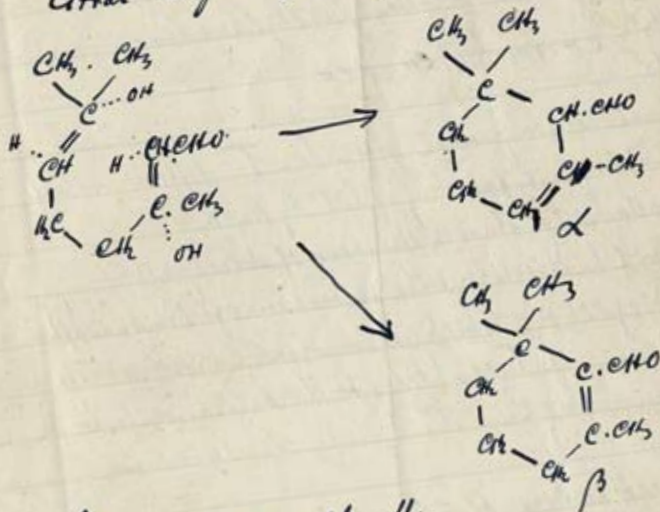 CH3 . CH3
C ... OH
H ... CH
H ... CH.CHO
H2C
CH2
C. CH3
OH
CH3 CH3
C
CH2
CH.CHO
CH2
CH
C - CH3
α
CH3 CH3
C
CH2
C.CHO
CH2
C.CH3
CH2
β